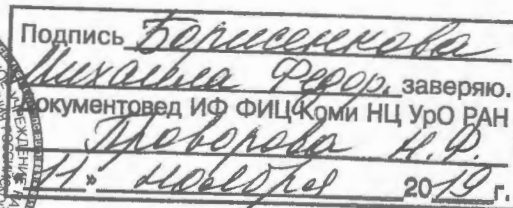 Подпись Борисенкова
Михаила Федор. заверяю.
Документовед ИФ ФИЦ Коми НЦ УрО РАН
Проворова Н.Ф.
11" ноября 2019 г.